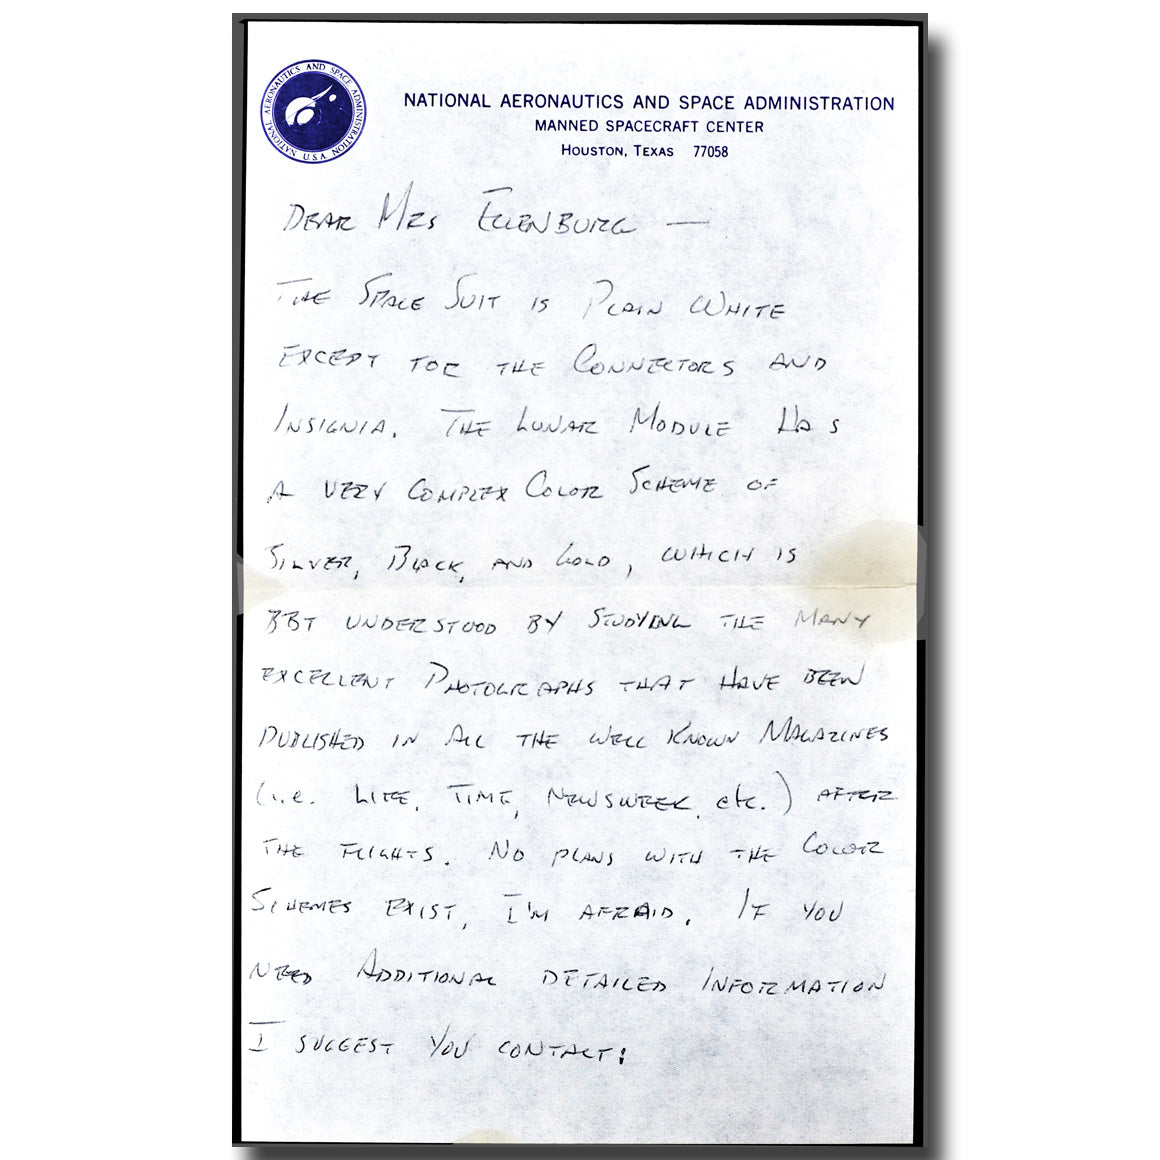 NATIONAL AERONAUTICS AND SPACE ADMINISTRATION
U.S.A.
NATIONAL AERONAUTICS AND SPACE ADMINISTRATION
MANNED SPACECRAFT CENTER
HOUSTON, TEXAS 77058
DEAR MRS ELLENBURG —
THE SPACE SUIT IS PLAIN WHITE
EXCEPT FOR THE CONNECTORS AND
INSIGNIA. THE LUNAR MODULE HAS
A VERY COMPLEX COLOR SCHEME OF
SILVER, BLACK, AND GOLD, WHICH IS
BBT UNDERSTOOD BY STUDYING THE MANY
EXCELLENT PHOTOGRAPHS THAT HAVE BEEN
PUBLISHED IN ALL THE WELL KNOWN MAGAZINES
(i.e. LIFE, TIME, NEWSWEEK, etc.) AFTER
THE FLIGHTS. NO PLANS WITH THE COLOR
SCHEMES EXIST, I'M AFRAID. IF YOU
NEED ADDITIONAL DETAILED INFORMATION
I SUGGEST YOU CONTACT: